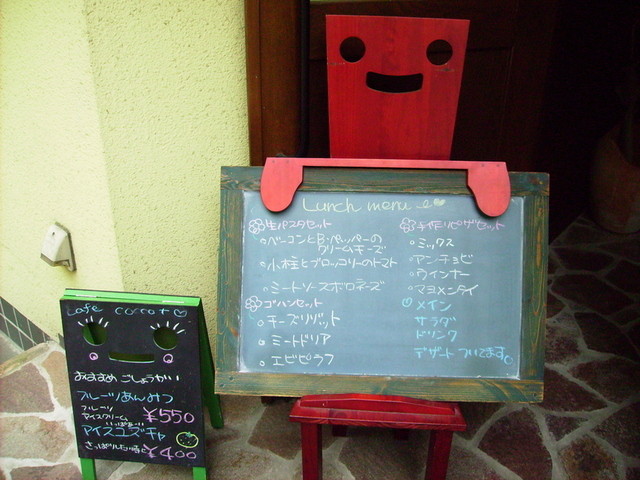 Lunch menu
生パスタセット
ベーコンとB・ペッパーの
クリームチーズ
小柱とブロッコリーのトマト
ミートソースボロネーズ
ゴハンセット
チーズリゾット
ミートドリア
エビピラフ
手作りピザセット
ミックス
アンチョビ
ウインナー
マヨメンタイ
メイン
サラダ
ドリンク
デザート ついてます
Cafe cocrot
おすすめ ごしょうかい
フルーツあんみつ
フルーツ
アイスクリーム
¥550
アイスユズ・チャ
¥400